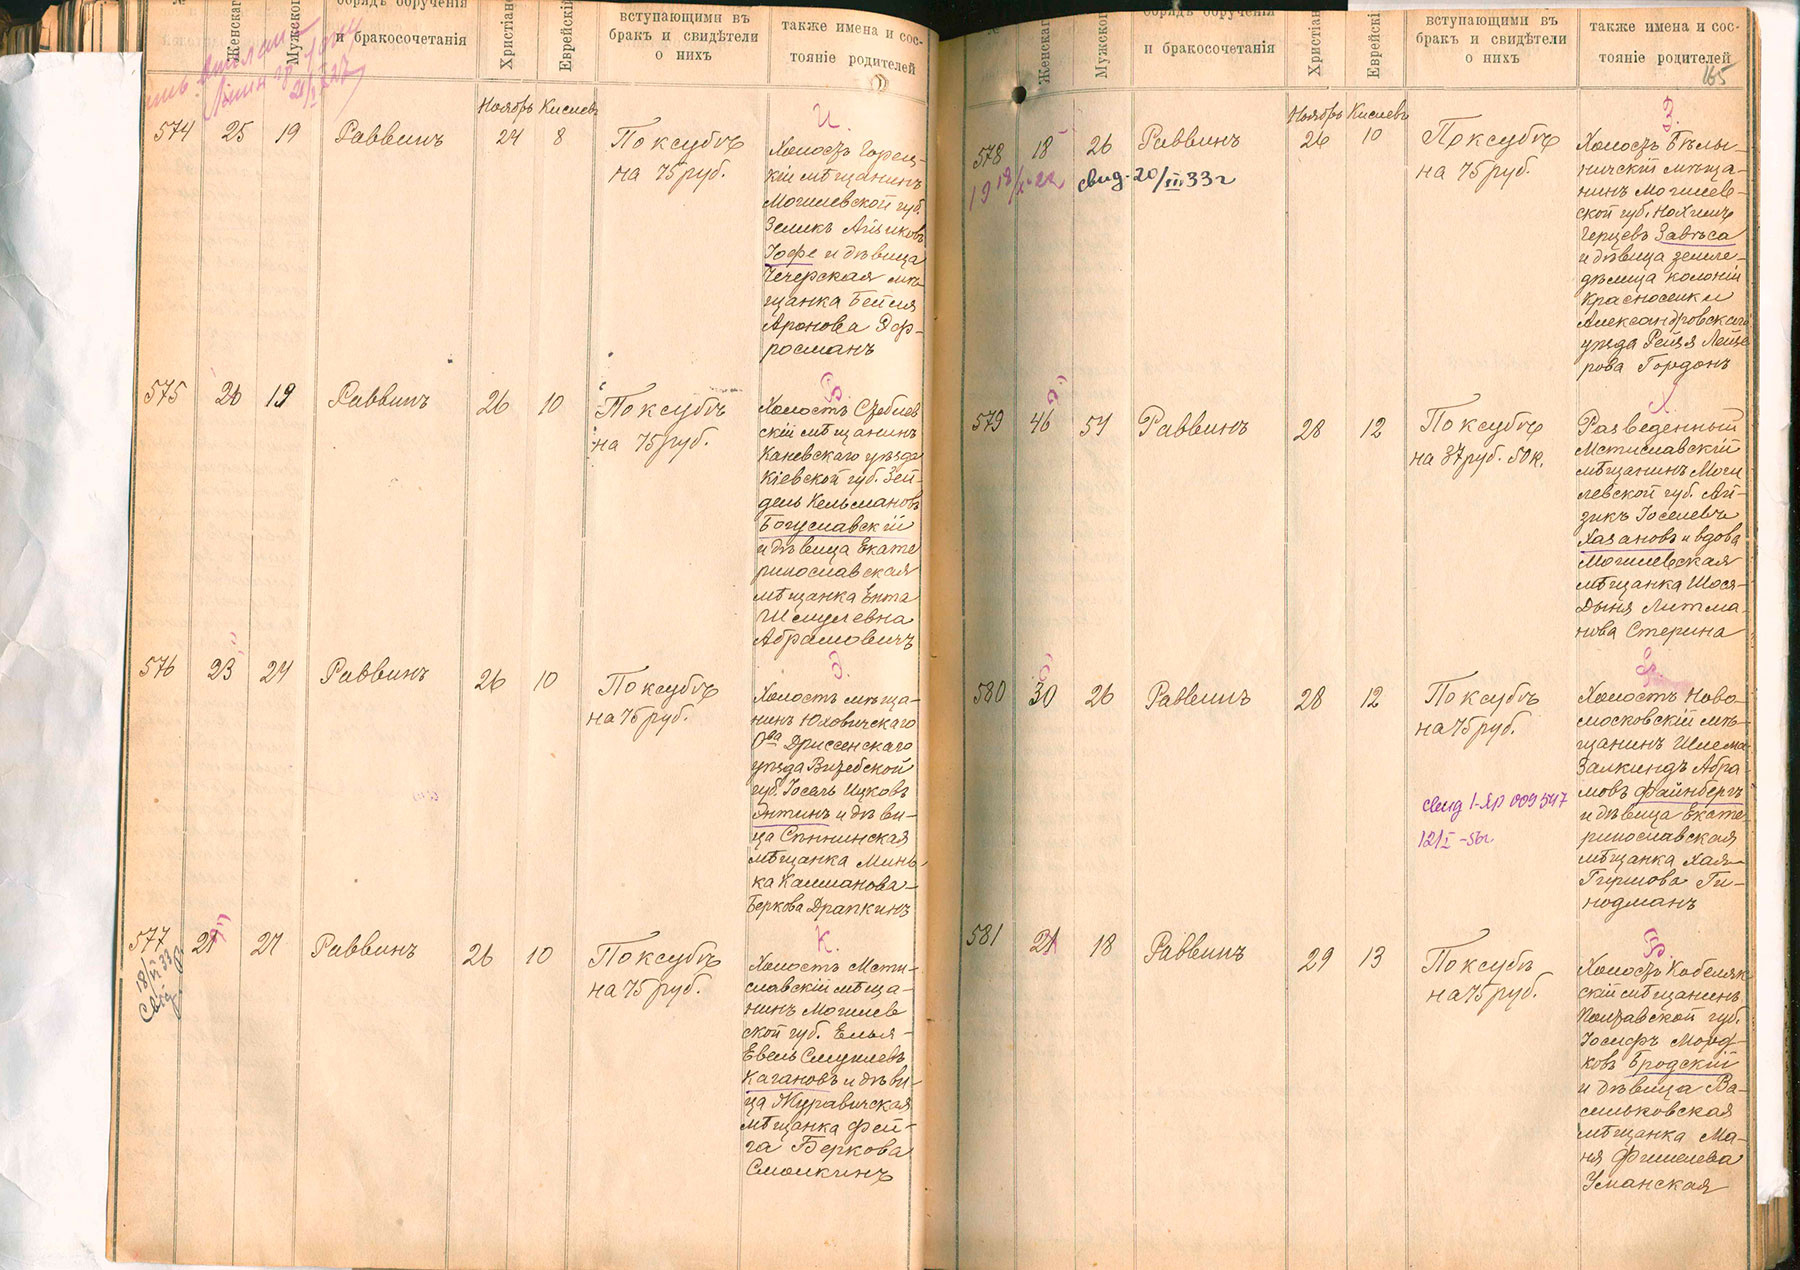 №
Женскаго
Мужского
обрядъ обрученія
и бракосочетанія
Христіан
Еврейскій
вступающими въ
бракъ и свидѣтели
о нихъ
также имена и сос-
тояніе родителей
Ноябрь Кислевъ
574 25 19 Раввинъ 24 8 По ксубѣ
на 75 руб.
И.
Холостъ Горец-
кій мѣщанинъ
Могилевской губ.
Зеликъ
Іофе и дѣвица
Чечерская мѣ-
щанка Бейля
Аронова Эф-
росманъ
575 20 19 Раввинъ 26 10 По ксубѣ
на 75 руб.
Б.
Холостъ Стеблев
скій мѣщанинъ
Каневскаго уѣзда
Кіевской губ. Зей-
дель Кельмановъ
Богуславскій
и дѣвица Екате
ринославская
мѣщанка Ента
Шмулевна
Абрамовичъ
576 23 24 Раввинъ 26 10 По ксубѣ
на 75 руб.
Э.
Холостъ мѣща-
нинъ Юховичскаго
О-ва Дриссенскаго
уѣзда Витебской
губ. Іосель Ицковъ
Энтинъ и дѣви-
ца Сѣннинская
мѣщанка Минь-
ка Калманова-
Беркова Драпкинъ
577 21 27 Раввинъ 26 10 По ксубѣ
на 75 руб.
К.
Холостъ Мсти-
славскій мѣща-
нинъ Могилев
ской губ. Елья-
Евель Смуилевъ
Кагановъ и дѣви-
ца Журавичская
мѣщанка Фей-
га Беркова
Смолкинъ
№
Женскаг
Мужског
обрядъ обрученія
и бракосочетанія
Христіан
Еврейскі
вступающими въ
бракъ и свидѣтели
о нихъ
также имена и сос-
тояніе родителей
165
Ноябрь Кислевъ
578 18 26 Раввинъ 26 10 По ксубѣ
на 75 руб.
свид. 20/III 33 г
З.
Холостъ Бѣлы-
ничскій мѣща-
нинъ Могилев-
ской губ. Нохимъ
Герцевъ Завѣса
и дѣвица земле-
дѣлица колоніи
Красноселки
Александровскаго
уѣзда Рейзя Лейзе
рова Гордонъ
579 46 54 Раввинъ 28 12 По ксубѣ
на 37 руб. 50 к.
Разведенный
Мстиславскій
мѣщанинъ Моги
левской губ. Ай-
зикъ Іоселевъ
Хазановъ и вдова
Могилевская
мѣщанка Шося-
Дыня Литма-
нова Стерина
580 30 26 Раввинъ 28 12 По ксубѣ
на 75 руб.
свид I-ЯР 009547
12/I -56г
Ф.
Холостъ Ново-
московскій мѣ-
щанинъ Шлема-
Залкиндъ Абра-
мовъ Файнбергъ
и дѣвица Екате
ринославская
мѣщанка Хая-
Гиршова Ги-
нодманъ
581 21 18 Раввинъ 29 13 По ксубѣ
на 75 руб.
Б.
Холостъ Кобеляк
скій мѣщанинъ
Полтавской губ.
Іосифъ Морд-
ковъ Бродскій
и дѣвица Ва-
сильковская
мѣщанка Ма-
ня Фишелева
Уманская